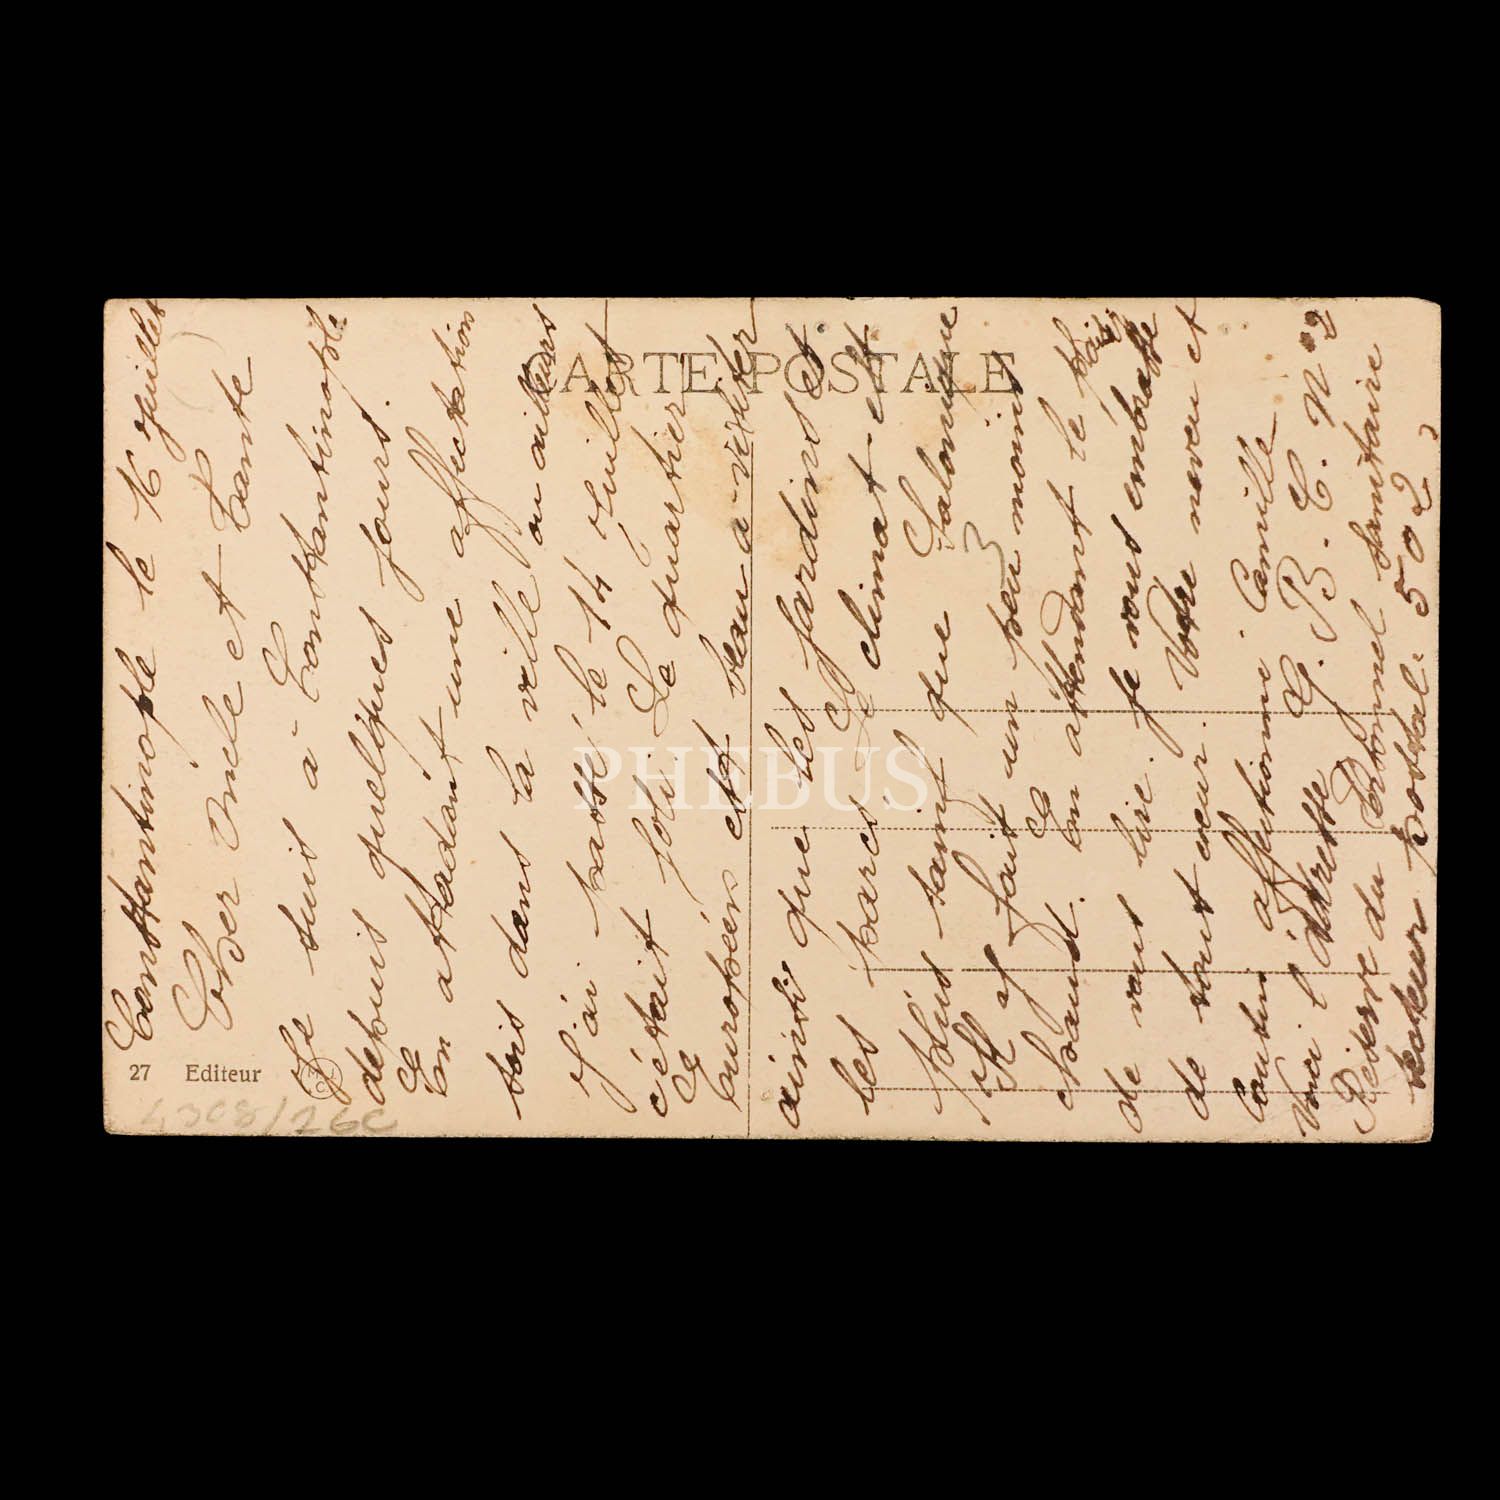 CARTE POSTALE
Constantinople le 16 juillet
Cher Oncle et Tante
Je suis à Constantinople
depuis quelques jours.
En attadant une affectation
sois dans la ville ou ailleurs
J'ai passé le 14 Juillet
c'était joli. Le quartier
Européen est beau a visiter
ainsi que les jardins et
les parcs. Le climat est
plus saint que Salonique
Il fait un peu moins
chaud. En attendant le plaisir
de vous lire. je vous embrasse
de tout cœur. Votre neveu et
Cousin affectionné. Camille
Voici l'adresse G. B. C. N°2
Réserve du Personnel sanitaire
secteur postal. 502
27 Editeur
MJC
4308/26C
PHEBUS